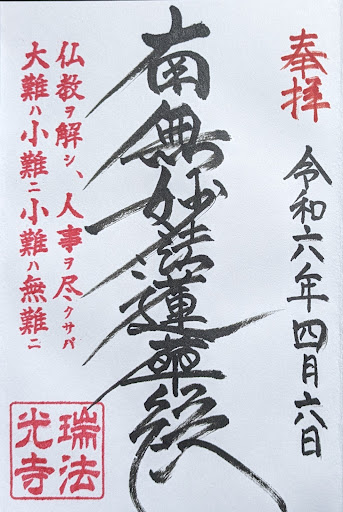 奉拝
令和六年四月六日
南無妙法蓮華経
仏教ヲ解シ、人事ヲ尽クサバ
大難ハ小難ニ小難ハ無難ニ
瑞法
光寺